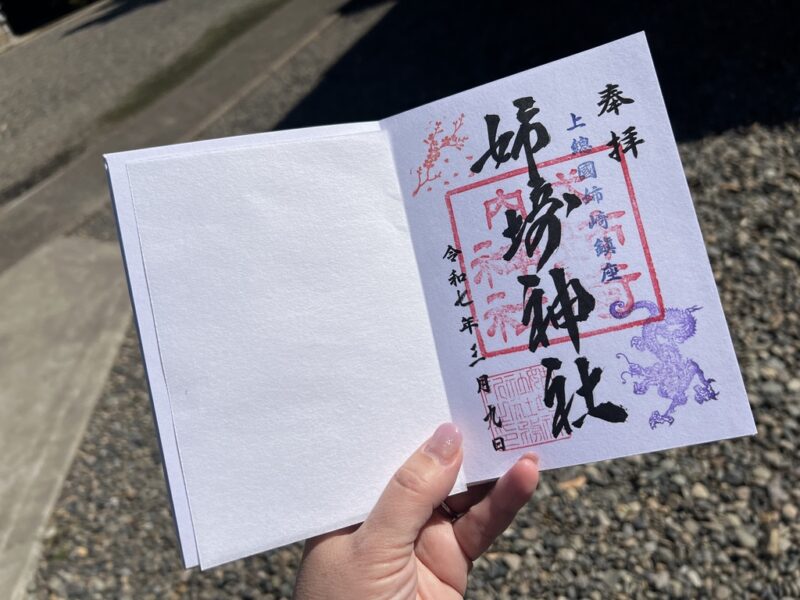 奉拝
上總國姉崎鎮座
姉埼神社
令和七年三月九日